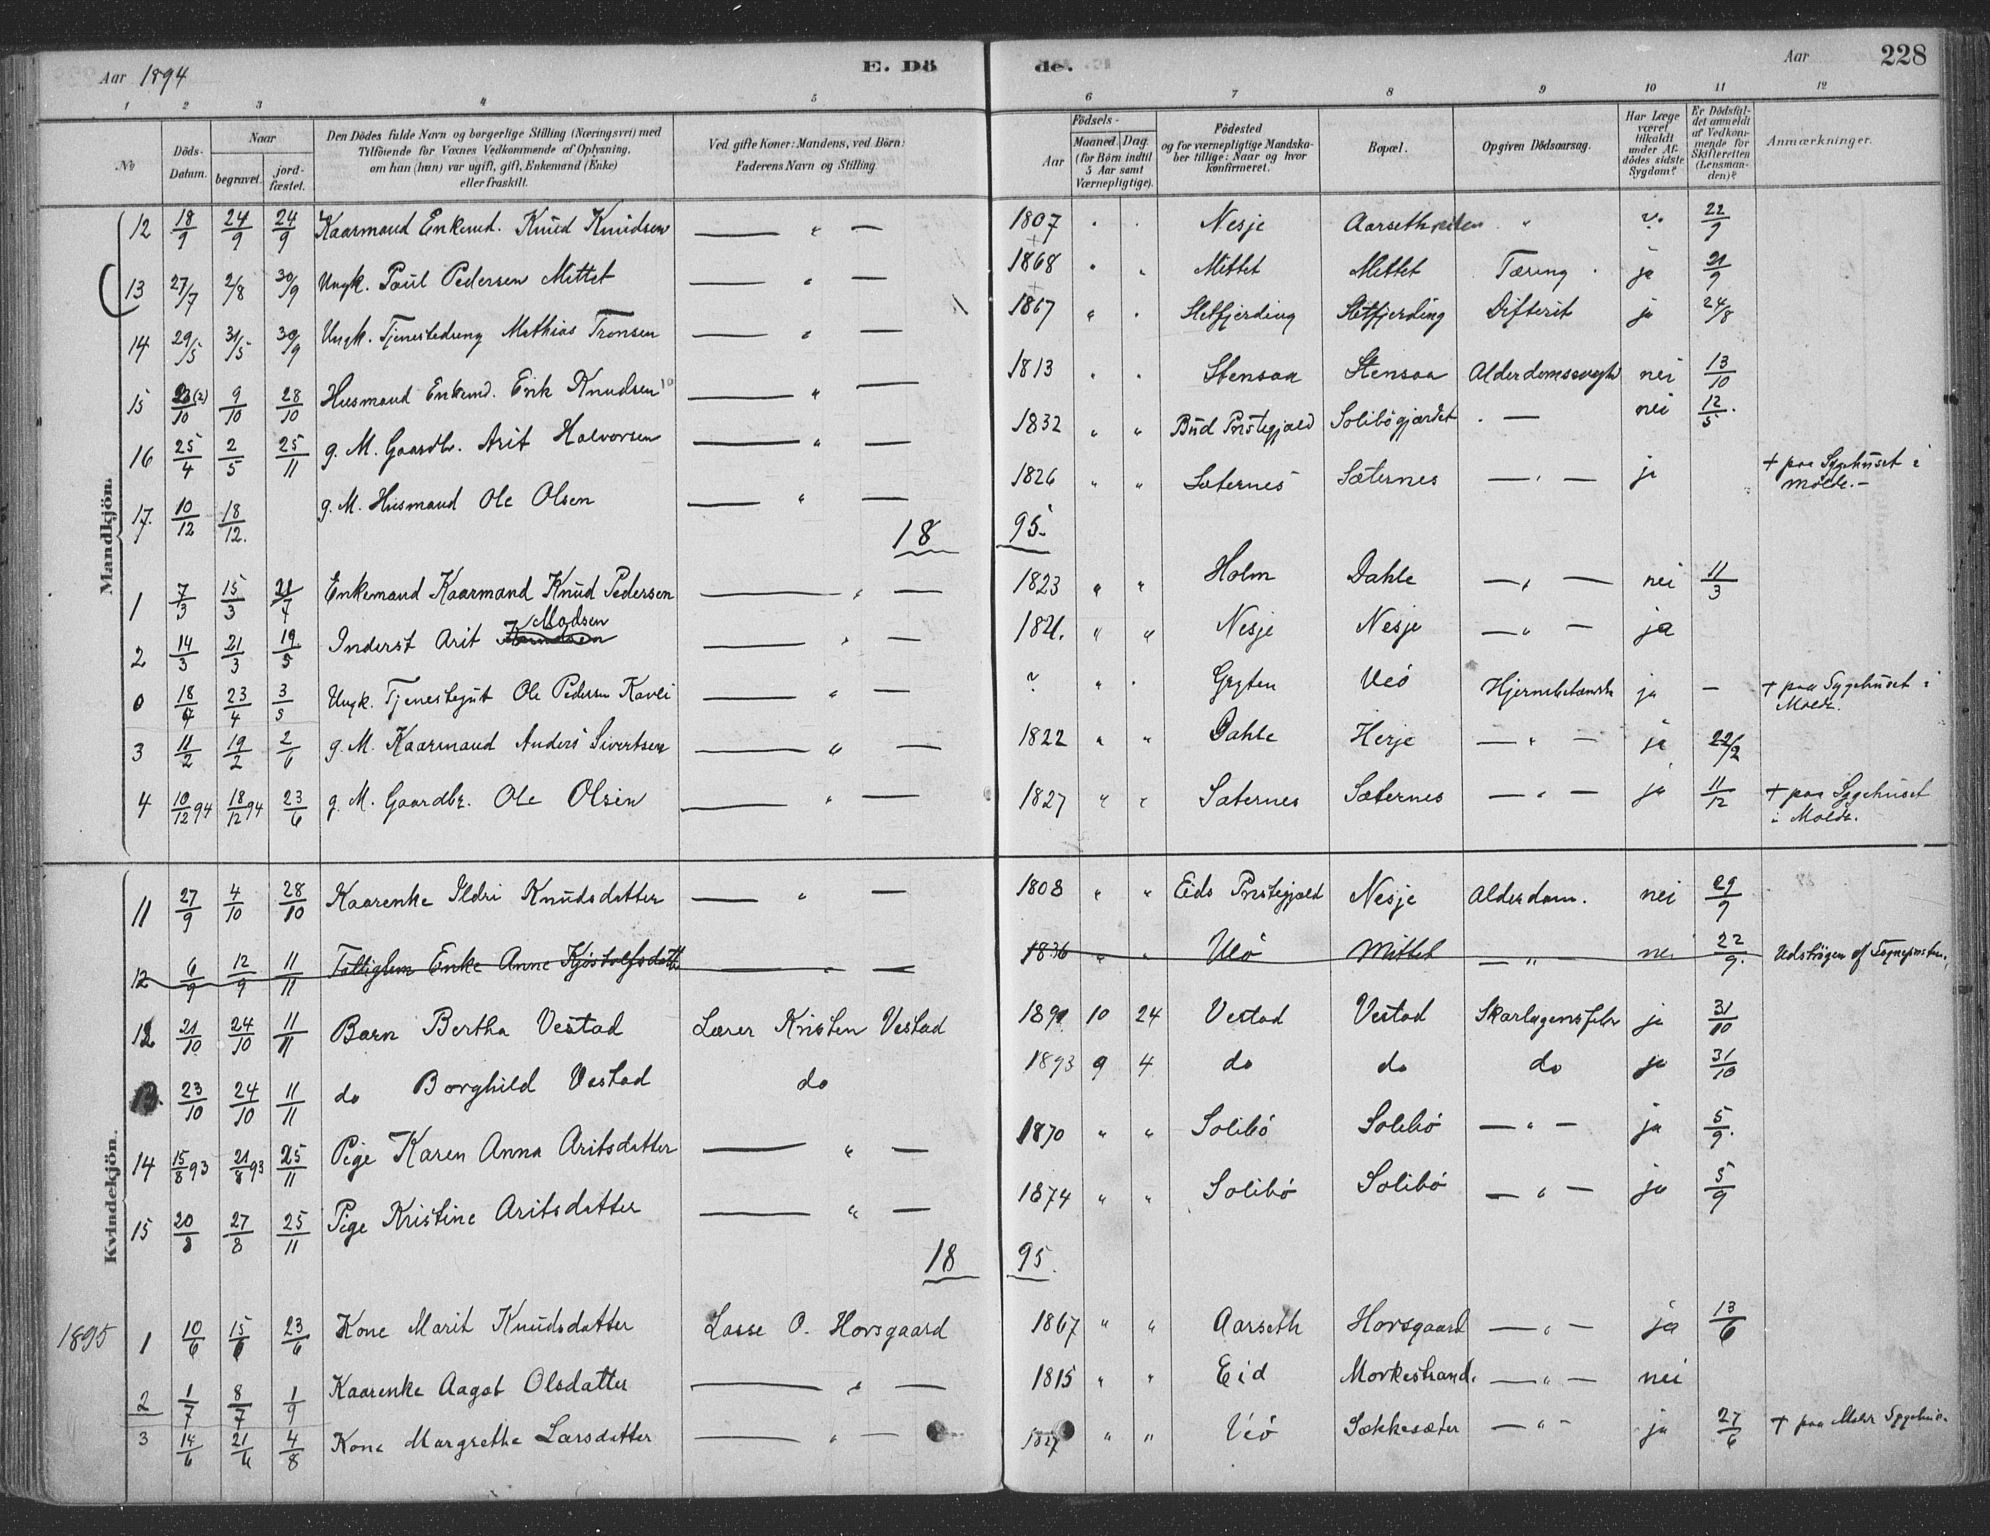 Aar 1894 E. Dö de. Aar 228
1 2 3 4 5 6 7 8 9 10 11 12
No Döds-Datum. Naar begravet. jord-fæstet. Den Dödes fulde Navn og borgerlige Stilling (Næringsvei) med Tilföiende for Voxnes Vedkommende af Oplysning, om han (hun) var ugift, gift, Enkemand (Enke) eller fraskilt. Ved gifte Koner: Mandens, ved Börn: Faderens Navn og Stilling. Födsels- Aar Maaned. Dag. (for Börn indtil 5 Aar samt Værnepligtige). Födested og for værnepligtige Mandskaber tillige: Naar og hvor konfirmeret. Bopæl. Opgiven Dödsaarsag. Har Læge været tilkaldt under Afdödes sidste Sygdom? Er Dödsfaldet anmeldt af Vedkommende for Skifteretten (Lensmanden)? Anmærkninger.
Mandkjön.
12 18/9 24/9 24/9 Kaarmand Enkemd. Knud Knudsen — " — 1807 " " Nesje " 22/9
13 27/7 2/8 30/9 Ungk. Paul Pedersen Mittet — " — 1868 " " Mittet Mittet Tæring ja 21/9
14 29/5 31/5 30/9 Ungk. Tjenestedreng Mathias Tronsen — " — 1867 " " Sletfjerding Sletfjerding Difterit ja 24/8
15 23(2)/10 9/10 28/10 Husmand Enkemd. Erik Knudsen — " — 1813 " " Stensaa Stensaa nei 13/10
16 25/4 2/5 25/11 g. M. Gaardbr. Arit Halvorsen — " — 1832 " " Bud Prstegjæld Solibögjærdet — nei 12/5
17. 10/12 18/12. g. M. Husmand Ole Olsen — " — 1826 " " Sæternes Sæternes — " — ja + paa Sygehuset i Molde.—
18 95.
1 7/3 15/3 21/7 Enkemand Kaarmand Knud Pedersen — " — 1823 " " Holm Dahle — " — nei 11/3
2 14/3 21/3 19/5 Inderst Arit Madsen — " — 1821. " " Nesje Nesje — " — ja
0 18/4 23/4 3/5 Ungk. Tjenestegut Ole Pedersen Kavli — " — ? " " Gryten Veö ja — + paa Sygehuset i Molde.
3 11/2 19/2 2/6 g. M. Kaarmand Anders Sivertsen — " — 1822 " " Dahle Herje — " — ja 22/2
4 10/12 94 18/12 94 23/6 g. M. Gaardbr. Ole Olsen — " — 1827 " " Sæternes Sæternes — " — ja 11/12 + paa Sygehuset i Molde.
Kvindekjön.
11 27/9 4/10 28/10 Kaarenke Ildri Knudsdatter — " — 1808 " " Eids Prstegjæld Nesje Alderdom. nei 29/9
12 6/9 12/9 11/11 Fattiglem Enke Anne Kjöstolfsdatter — " — 1836 " " Veö Mittet — " — nei 22/9. Udströgen af Sogneprsten.
12 21/10 24/10 11/11 Barn Bertha Vestad Lærer Kristen Vestad 1891 10 24 Vestad Vestad Skarlagensfeber ja 31/10
13. 23/10 24/10 11/11 do Borghild Vestad do 1893 9 4 do do do ja 31/10
14 15/8 93 21/8 93 25/11 Pige Karen Anna Aritsdatter — " — 1870 " " Solibö Solibö — " — ja 5/9.
15 20/8 27/8 25/11 Pige Kristine Aritsdatter — " — 1874 " " Solibö Solibö — " — ja 5/9
18 95.
1895 1 10/6 15/6 23/6 Kone Marit Knudsdatter Lasse O. Horsgaard 1867 " " Aarseth Horsgaard — " — ja 13/6
2 1/7 8/7 1/9 Kaarenke Aagot Olsdatter — " — 1815 " " Eid Morkestrand. — " — nei
3 14/6 21/6 4/8 Kone Margrethe Larsdatter — " — 1827 " " Veö Sækkesæter — " — ja 27/6 + paa Molde Sygehus.